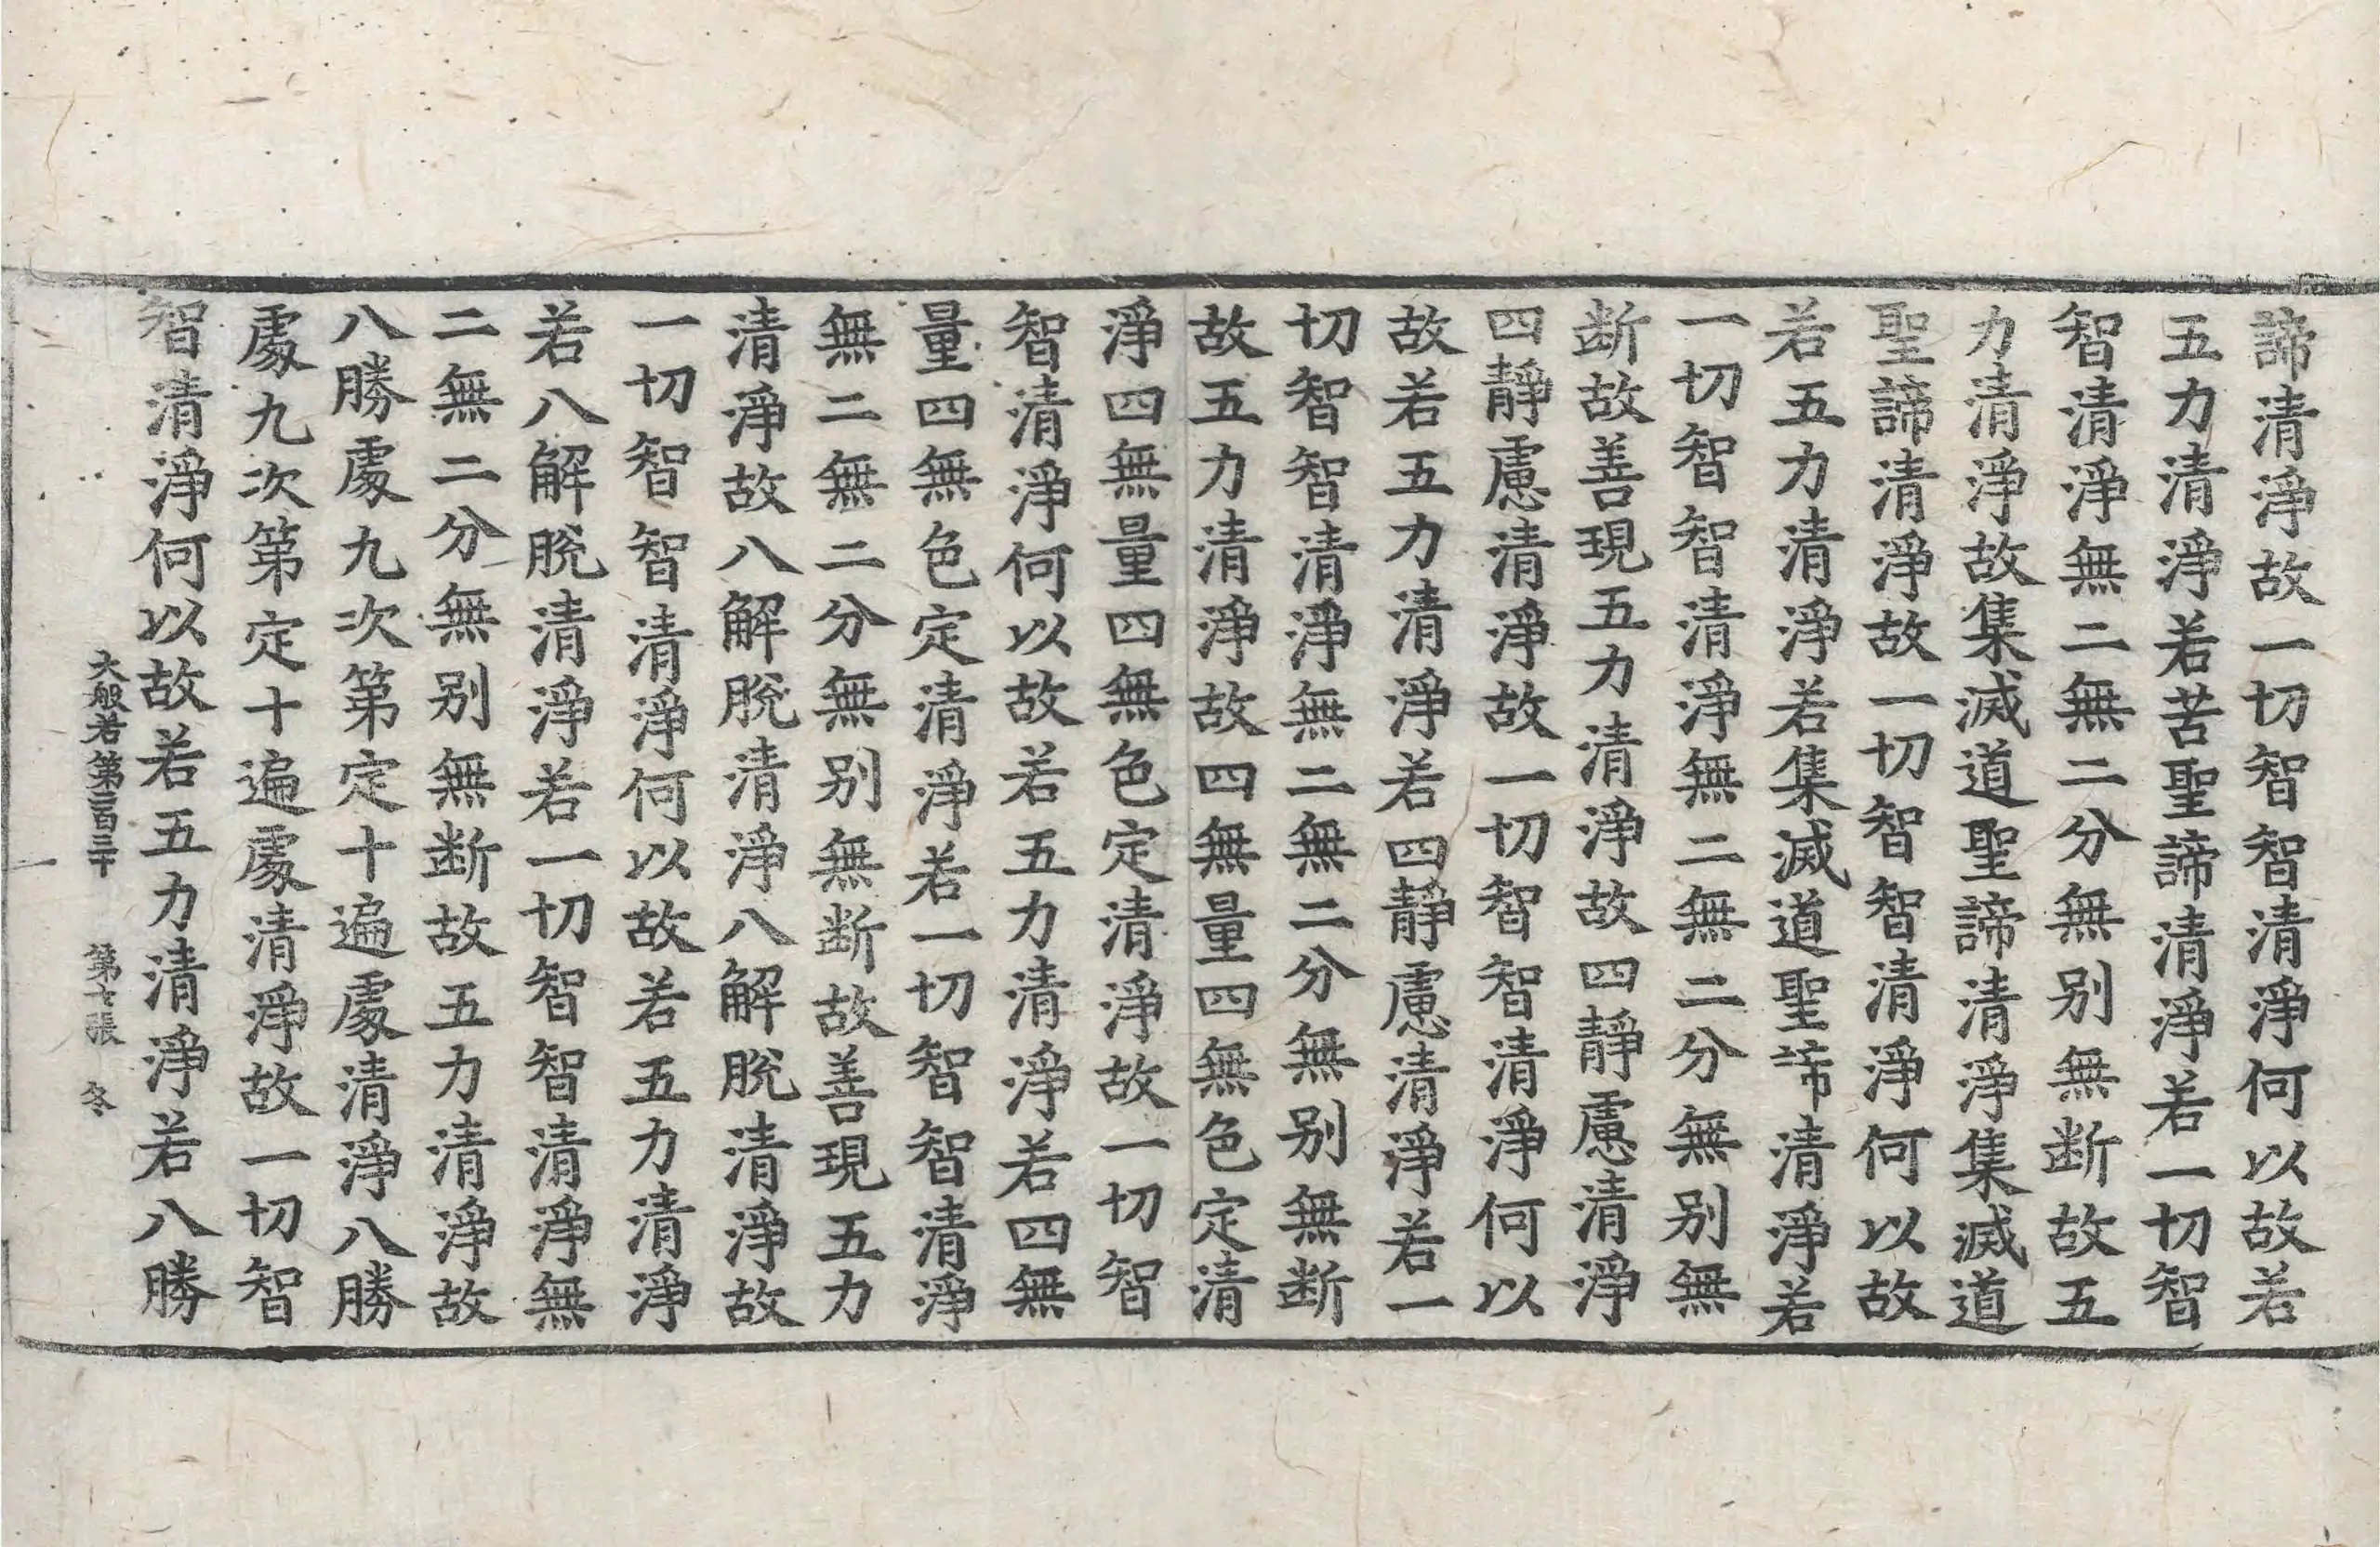 諦清淨故一切智智清淨何以故若
五力清淨若苦聖諦清淨若一切智
智清淨無二無二分無别無断故五
力清淨故集滅道聖諦清淨集滅道
聖諦清淨故一切智智清淨何以故
若五力清淨若集滅道聖諦清淨若
一切智智清淨無二無二分無别無
断故善現五力清淨故四靜慮清淨
四靜慮清淨故一切智智清淨何以
故若五力清淨若四靜慮清淨若一
切智智清淨無二無二分無别無断
故五力清淨故四無量四無色定清
淨四無量四無色定清淨故一切智
智清淨何以故若五力清淨若四無
量四無色定清淨若一切智智清淨
無二無二分無别無断故善現五力
清淨故八解脫清淨八解脫清淨故
一切智智清淨何以故若五力清淨
若八解脫清淨若一切智智清淨無
二無二分無别無断故五力清淨故
八勝處九次第定十遍處清淨八勝
處九次第定十遍處清淨故一切智
智清淨何以故若五力清淨若八勝
大般若第二百三十 第七張 冬